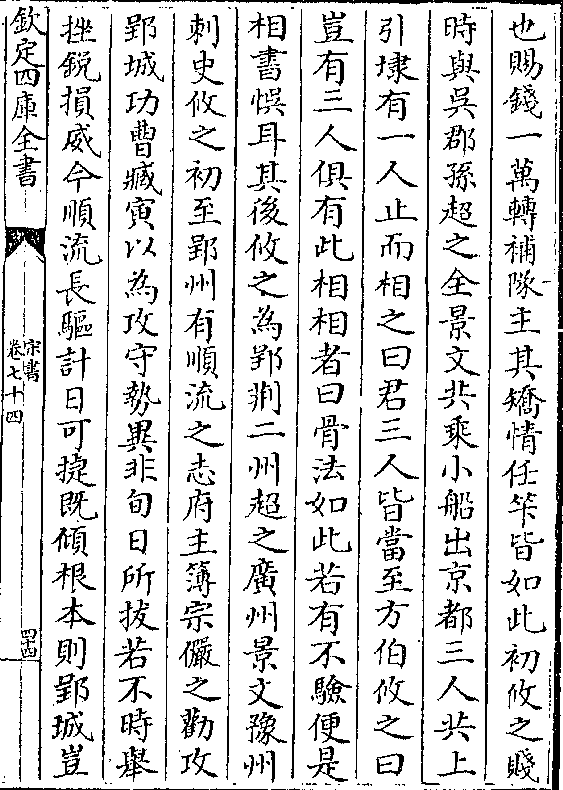 也賜錢一萬轉補隊主其矯情任筭皆如此初攸之賤
時與吳郡孫超之全景文共乘小船出京都三人共上
引埭有一人止而相之曰君三人皆當至方伯攸之曰
豈有三人俱有此相相者曰骨法如此若有不驗便是
相書悞耳其後攸之為郢荆二州超之廣州景文豫州
刺史攸之初至郢州有順流之志府主簿宗儼之勸攻
郢城功曹臧寅以為攻守勢異非旬日所拔若不時舉
挫鋭損威今順流長驅計日可㨗既傾根本則郢城豈
欽定四庫全書
宋書
卷七十四
四十四